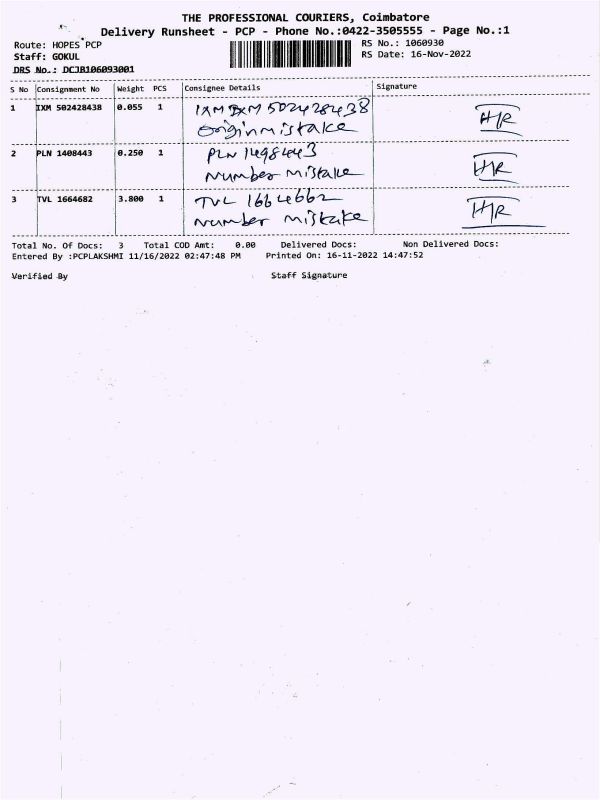 THE PROFESSIONAL COURIERS, Coimbatore
Delivery Runsheet - PCP - Phone No.:0422-3505555 - Page No.:1
Route: HOPES PCP
RS No.: 1060930
Staff: GOKUL
RS Date: 16-Nov-2022
DRS No.: DCJB106093001
S No Consignment No Weight PCS Consignee Details Signature
1 IXM 502428438 0.055 1 IXM 502428438 HR
Origin mistake
2 PLN 1408443 0.250 1 PLN 1498443 HR
Number mistake
3 TVL 1664682 3.800 1 TVL 1664662 HR
Number mistake
Total No. Of Docs: 3 Total COD Amt: 0.00 Delivered Docs: Non Delivered Docs:
Entered By :PCPLAKSHMI 11/16/2022 02:47:48 PM Printed On: 16-11-2022 14:47:52
Verified By Staff Signature